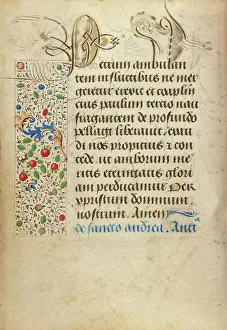 Petrum ambulan
tem in fluctibus ne mer
geretur erexit et coaplm
eius paulum tercio nau
fragantem de profundo
pellagi liberauit exau
di nos propicius et con
cede ut amborum me
ritis eternitatis glori
am perducamur Per
xpristum dominum
nostrum. Amen
de sancto andrea. Ant